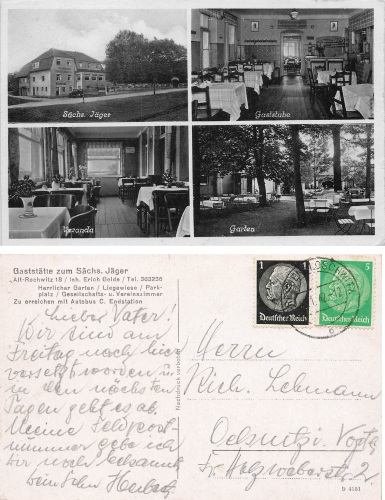 Sächs. Jäger
Gaststube
Veranda
Garten
Gaststätte zum Sächs. Jäger
Alt-Rochwitz 18 / Inh. Erich Golde / Tel. 363236
Herrlicher Garten / Liegewiese / Park-
platz / Gesellschafts- u. Vereinszimmer
Zu erreichen mit Autobus C, Endstation
Lieber Vater!
Wir sind am
Freitag nach hier
versetzt worden u.
in den nächsten
Tagen geht es ab.
Meine Feldpost-
nummer gebe ich
Dir noch bekannt.
Dein Sohn Herbert
Nachdruck verboten
1 1
Deutsches Reich
5
Deutsches Reich
Herrn
Rich. Lehmann
Oelsnitz i. Vogtl.
Fr. Holzweberstr. 2.
D 4181